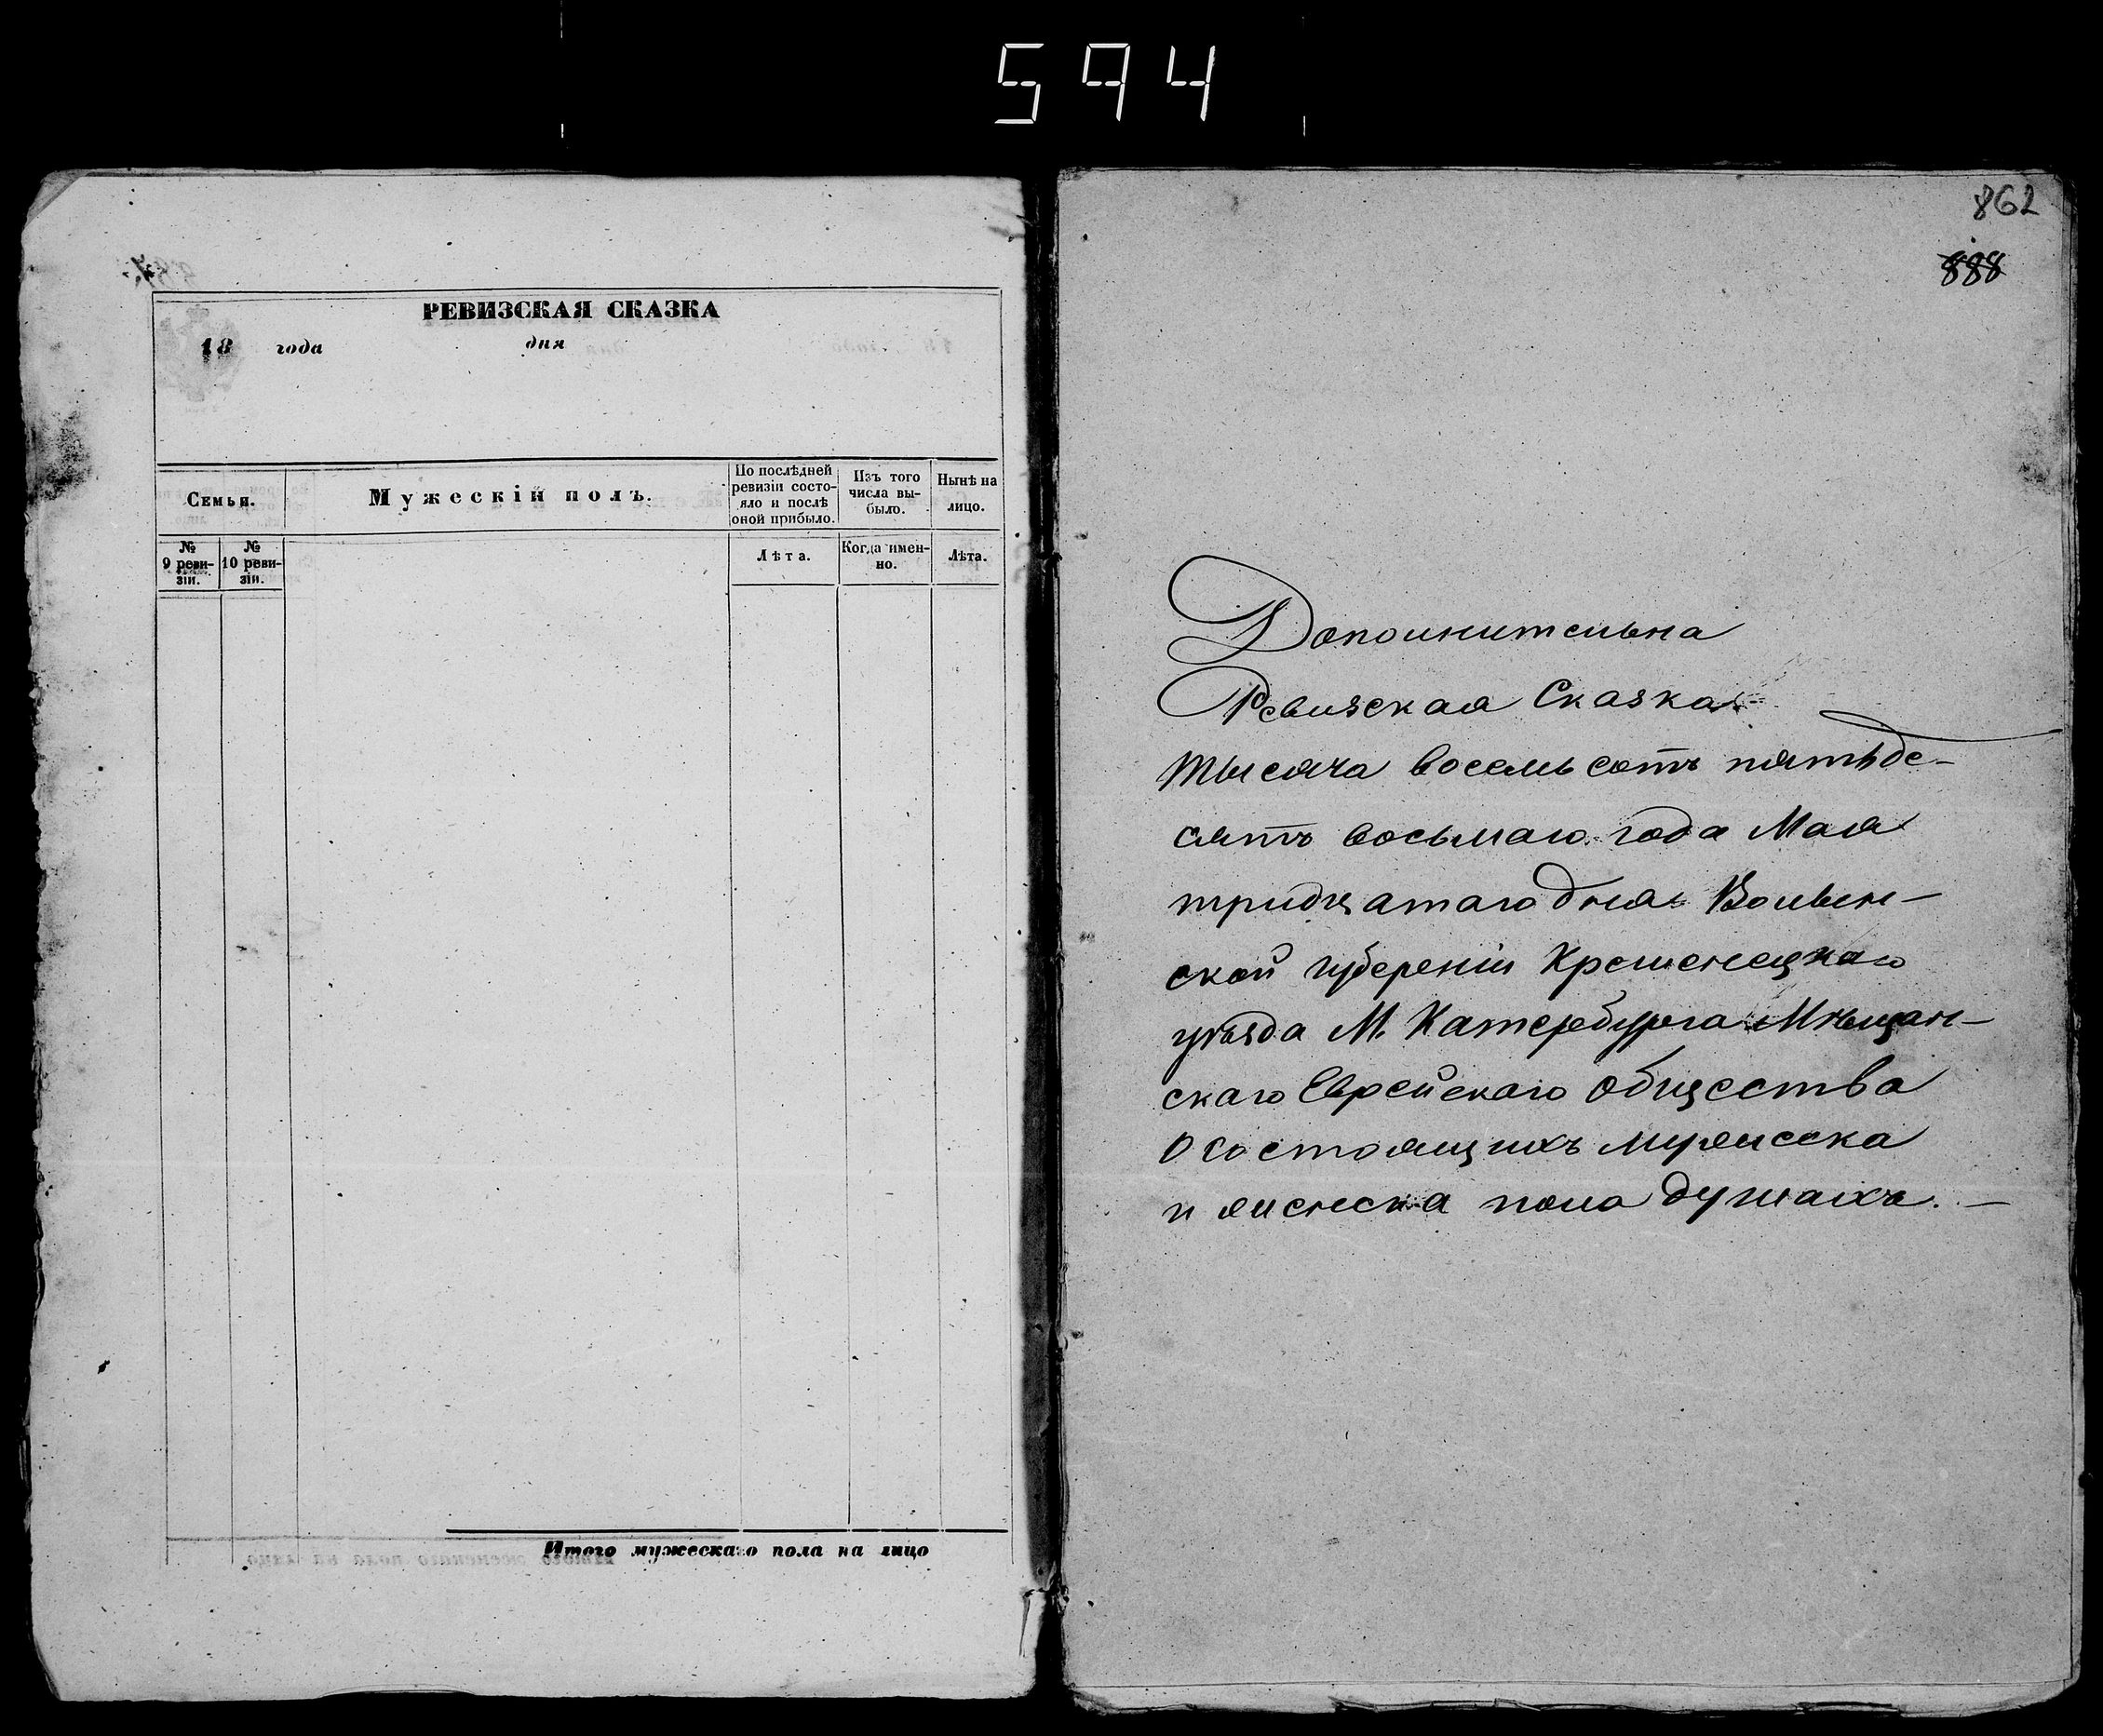 594
РЕВИЗСКАЯ СКАЗКА
18 года дня
Семьи.
Мужескій полъ.
По послѣдней
ревизіи состо-
яло и послѣ
оной прибыло.
Изъ того
числа вы-
было.
Нынѣ на
лицо.
№
9 реви-
зіи.
№
10 реви-
зіи.
Лѣта.
Когда имен-
но.
Лѣта.
Итого мужескаго пола на лицо
862
888
Дополнительна
Ревизская Сказка
тысяча восемьсотъ пятьде-
сятъ восьмаго года Мая
тридцатаго дня Волын-
ской губерніи Кременецкаго
уѣзда М. Катербурга Мѣщан-
скаго Еврейскаго общества
о состоящихъ мужеска
и женска пола душахъ. —